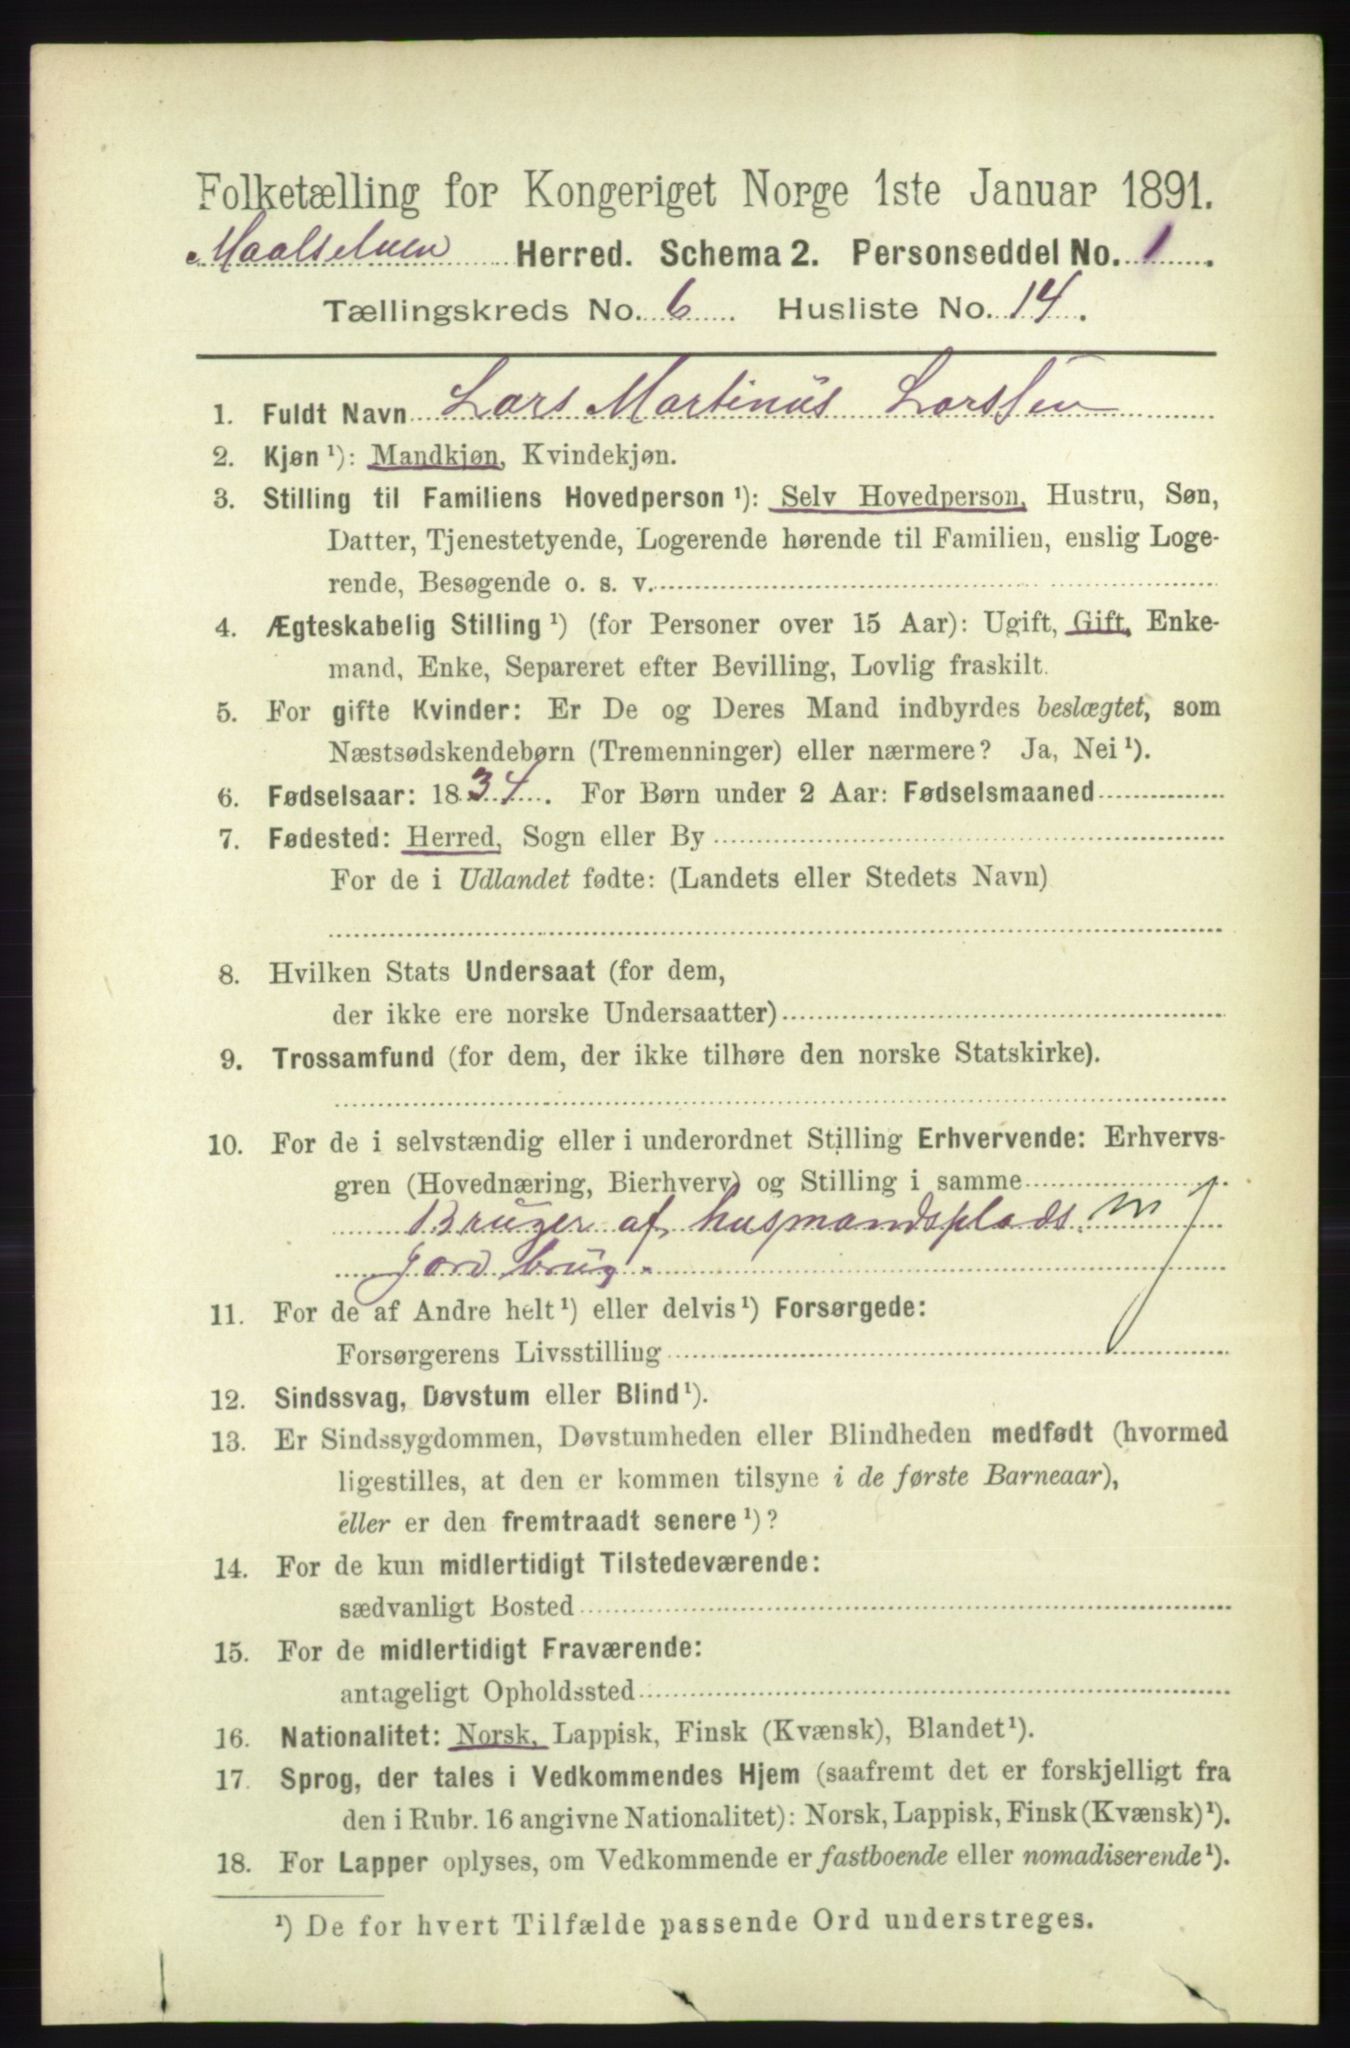 Folketælling for Kongeriget Norge 1ste Januar 1891.
Maalselven Herred. Schema 2. Personseddel No. 1.
Tællingskreds No. 6. Husliste No. 14.
1. Fuldt Navn Lars Martinus Larssen
2. Kjøn ¹): Mandkjøn, Kvindekjøn.
3. Stilling til Familiens Hovedperson ¹): Selv Hovedperson, Hustru, Søn,
Datter, Tjenestetyende, Logerende hørende til Familien, enslig Loge-
rende, Besøgende o. s. v.
4. Ægteskabelig Stilling ¹) (for Personer over 15 Aar): Ugift, Gift, Enke-
mand, Enke, Separeret efter Bevilling, Lovlig fraskilt.
5. For gifte Kvinder: Er De og Deres Mand indbyrdes beslægtet, som
Næstsødskendebørn (Tremenninger) eller nærmere? Ja, Nei ¹).
6. Fødselsaar: 1834. For Børn under 2 Aar: Fødselsmaaned
7. Fødested: Herred, Sogn eller By
For de i Udlandet fødte: (Landets eller Stedets Navn)
8. Hvilken Stats Undersaat (for dem,
der ikke ere norske Undersaatter)
9. Trossamfund (for dem, der ikke tilhøre den norske Statskirke).
10. For de i selvstændig eller i underordnet Stilling Erhvervende: Erhvervs-
gren (Hovednæring, Bierhverv) og Stilling i samme
Bruger af husmandsplads m
Jordbrug.
11. For de af Andre helt ¹) eller delvis ¹) Forsørgede:
Forsørgerens Livsstilling
12. Sindssvag, Døvstum eller Blind ¹).
13. Er Sindssygdommen, Døvstumheden eller Blindheden medfødt (hvormed
ligestilles, at den er kommen tilsyne i de første Barneaar),
eller er den fremtraadt senere ¹)?
14. For de kun midlertidigt Tilstedeværende:
sædvanligt Bosted
15. For de midlertidigt Fraværende:
antageligt Opholdssted
16. Nationalitet: Norsk, Lappisk, Finsk (Kvænsk), Blandet ¹).
17. Sprog, der tales i Vedkommendes Hjem (saafremt det er forskjelligt fra
den i Rubr. 16 angivne Nationalitet): Norsk, Lappisk, Finsk (Kvænsk) ¹).
18. For Lapper oplyses, om Vedkommende er fastboende eller nomadiserende ¹).
¹) De for hvert Tilfælde passende Ord understreges.